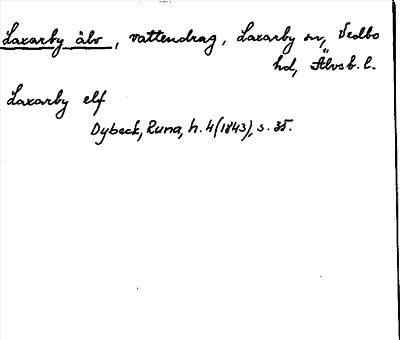 Laxarby älv, vattendrag, Laxarby sn, Vedbo
hd, Älvsb. l.
Laxarby elf
Dybeck, Runa, h. 4 (1843), s. 35.